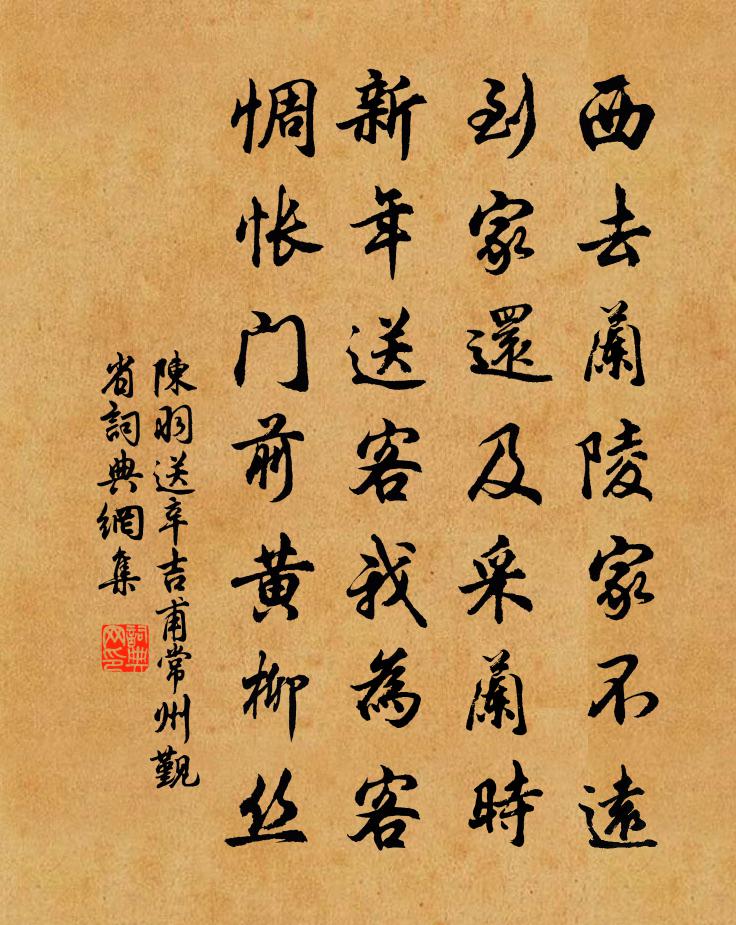 西去蘭陵家不遠
到家還及采蘭時
新年送客我為客
惆怅门前黄柳丝
陳羽送辛吉甫常州覲
省詞典網集
詞典
网印